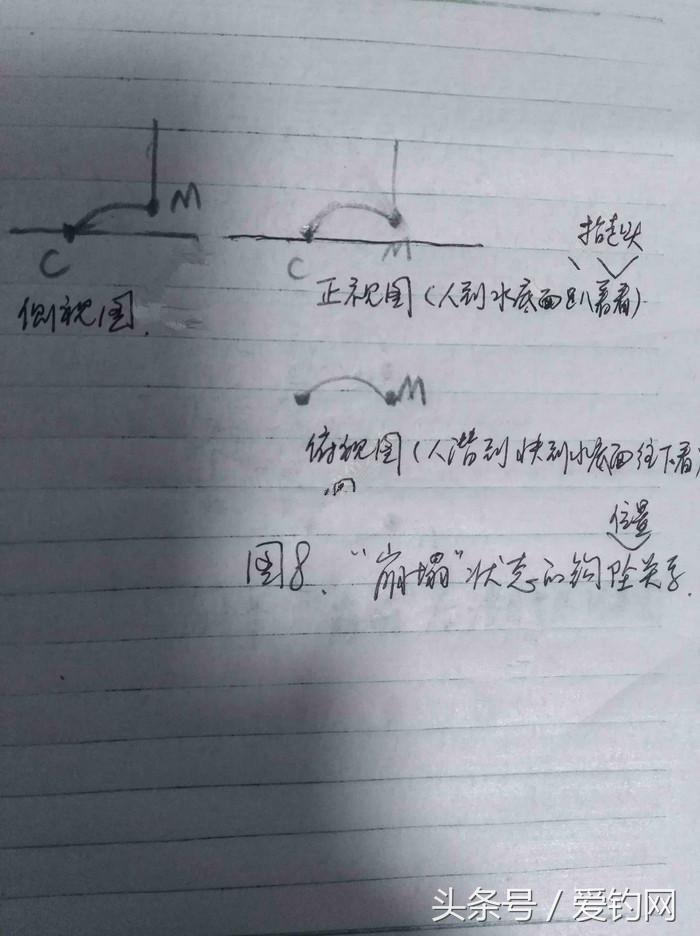 M
C
侧视图.
M
C
抬起头
正视图(人到水底面趴着看)
M
俯视图(人潜到快到水底面往下看)
位置
图8、"崩塌"状态的钩坠关系.
头条号 / 爱钓网